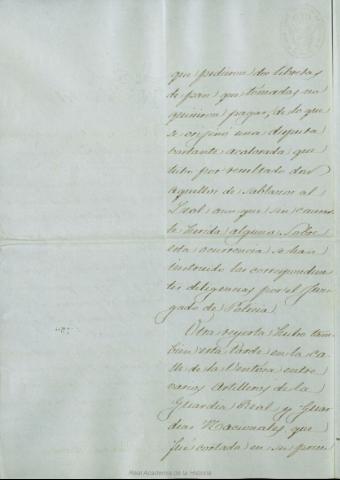 que pidieron dos libretas
de pan que tomadas no
quisieron pagar, de lo que
se originó una disputa
bastante acalorada que
tubo por resultado dar
aquellos de sablazos al
aun que sin causar
le herida alguna. Sobre
esta ocurrencia se han
instruido las correspondien
tes diligencias por el Juz
gado de Palacio.
Otra reyerta hubo tam
bien esta tarde en la Ca
lle de la Ventosa entre
varios Artilleros de la
Guardia Real y Guar
dias Nacionales, que
fué cortada en su prin
Real Academia de la Historia